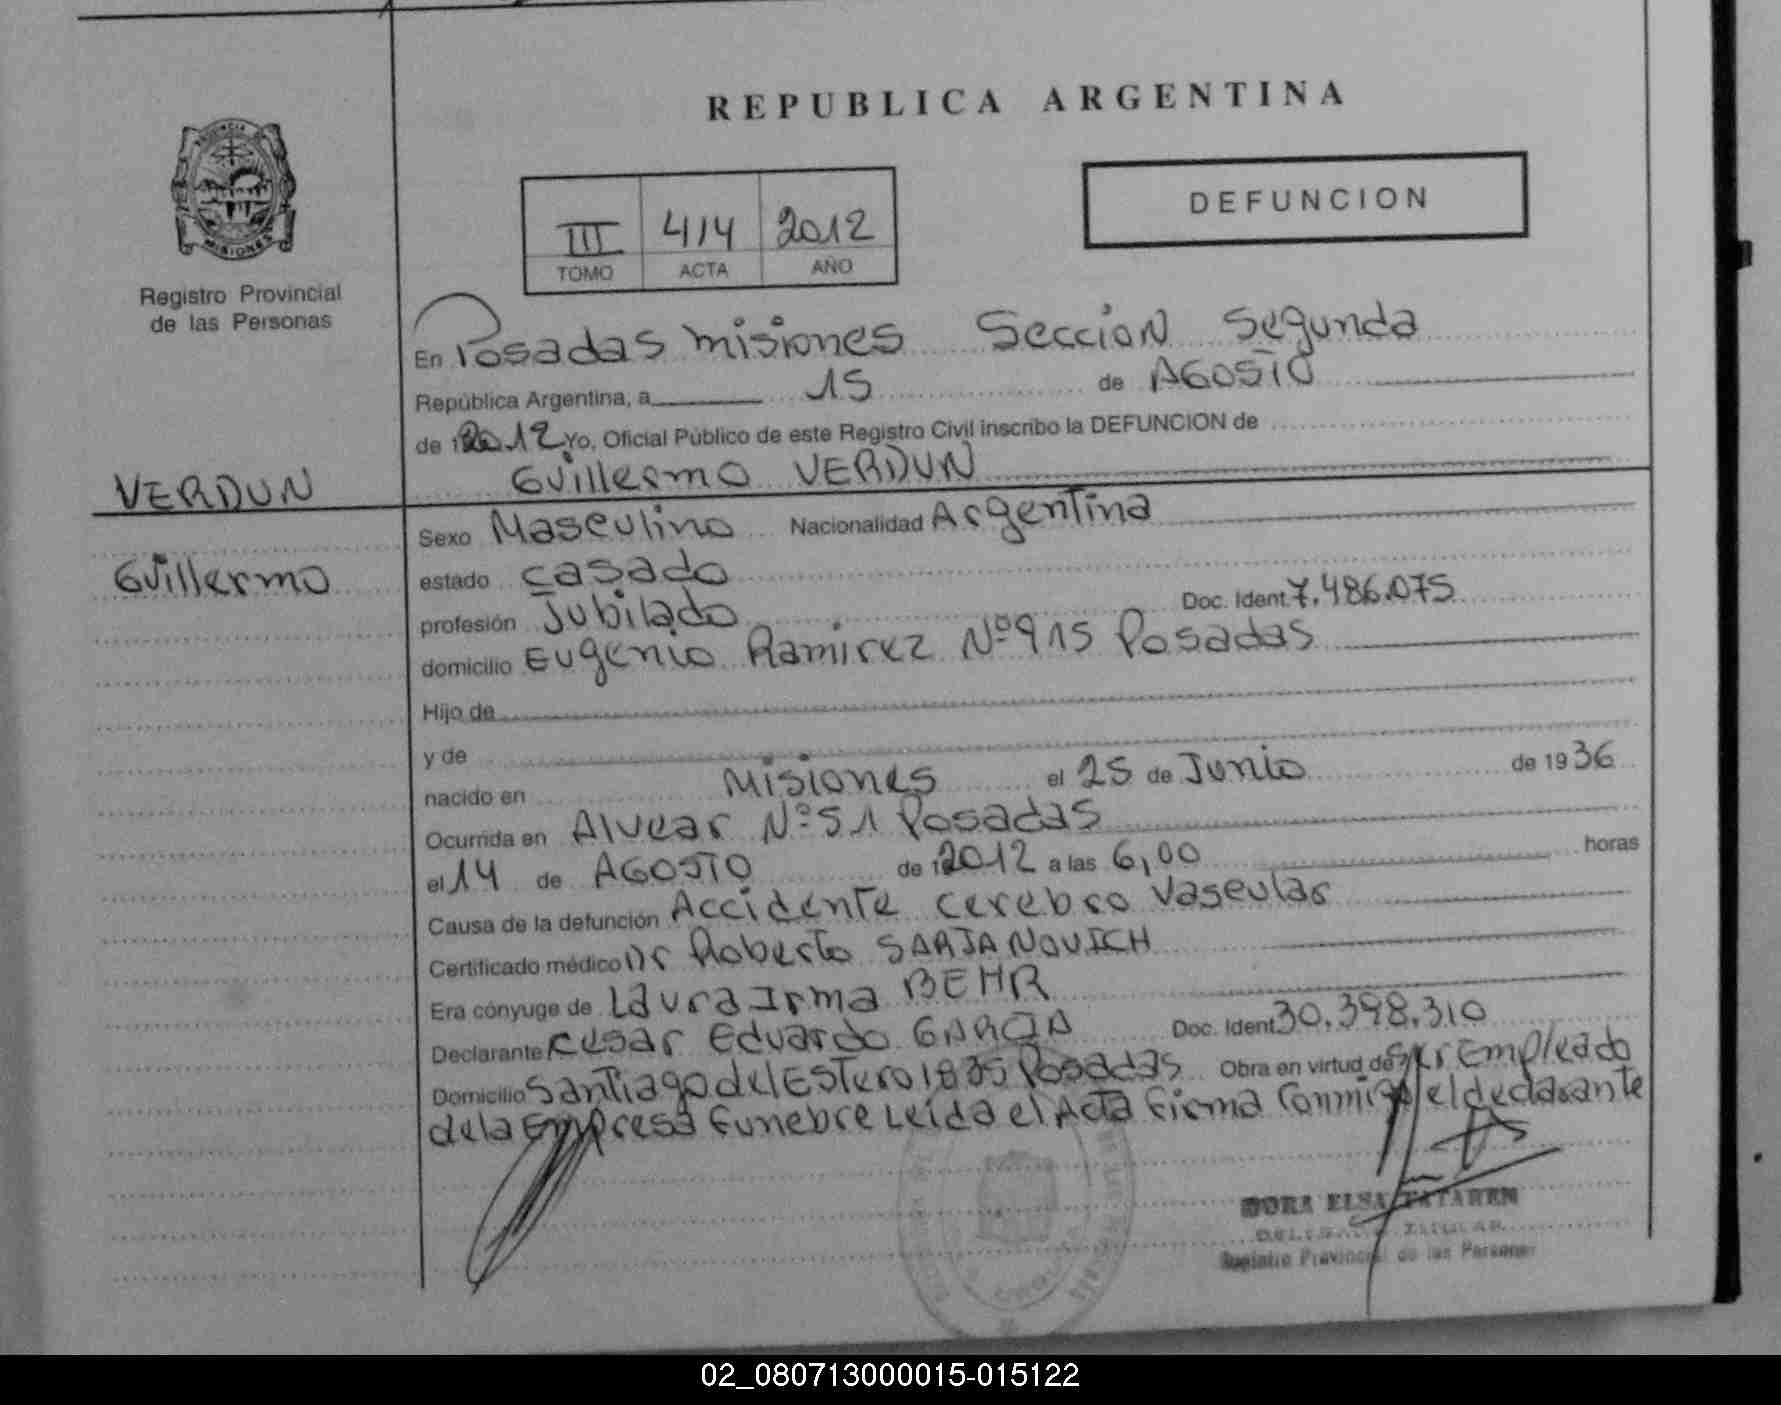 REPUBLICA ARGENTINA
DEFUNCION
III 414 2012
TOMO ACTA AÑO
PROVINCIA DE
MISIONES
Registro Provincial
de las Personas
En Posadas Misiones Seccion Segunda
República Argentina, a 15 de AGOSTO
de 2012 Yo, Oficial Público de este Registro Civil inscribo la DEFUNCION de
Guillermo VERDUN
VERDUN
Guillermo
Sexo Masculino Nacionalidad Argentina
estado casado
profesión Jubilado Doc. Ident. 7.486.075
domicilio Eugenio Ramirez Nº 915 Posadas
Hijo de
y de
nacido en Misiones el 25 de Junio de 1936
Ocurrida en Alvear Nº 51 Posadas
el 14 de AGOSTO de 2012 a las 6,00 horas
Causa de la defunción Accidente cerebro Vascular
Certificado médico Dr Roberto SARJANOVICH
Era cónyuge de Laura Irma BEHR
Declarante Cesar Eduardo GARCIA Doc. Ident. 30.398.310
Domicilio Santiago del Estero 1835 Posadas Obra en virtud de ser Empleado
de la Empresa Funebre Leida el Acta Firma Conmigo el declarante
DORA ELSA TATAREN
DELEGADA TITULAR
Registro Provincial de las Personas
02_080713000015-015122